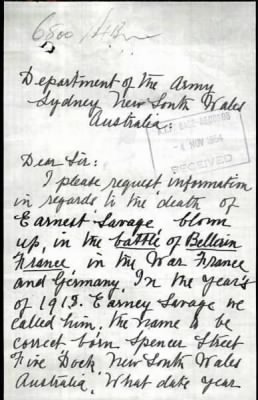 Department of the Army
Sydney New South Wales
Australia.
4 NOV 1964
RECEIVED
Dear Sir:
I please request information
in regards to the death of
Earnest Savage, blown
up, in the battle of
France in the War France
and Germany. In the year's
of 1918. Earney Savage we
called him, the name to be
correct born Spencer Street
Five Dock New South Wales
Australia. What date year